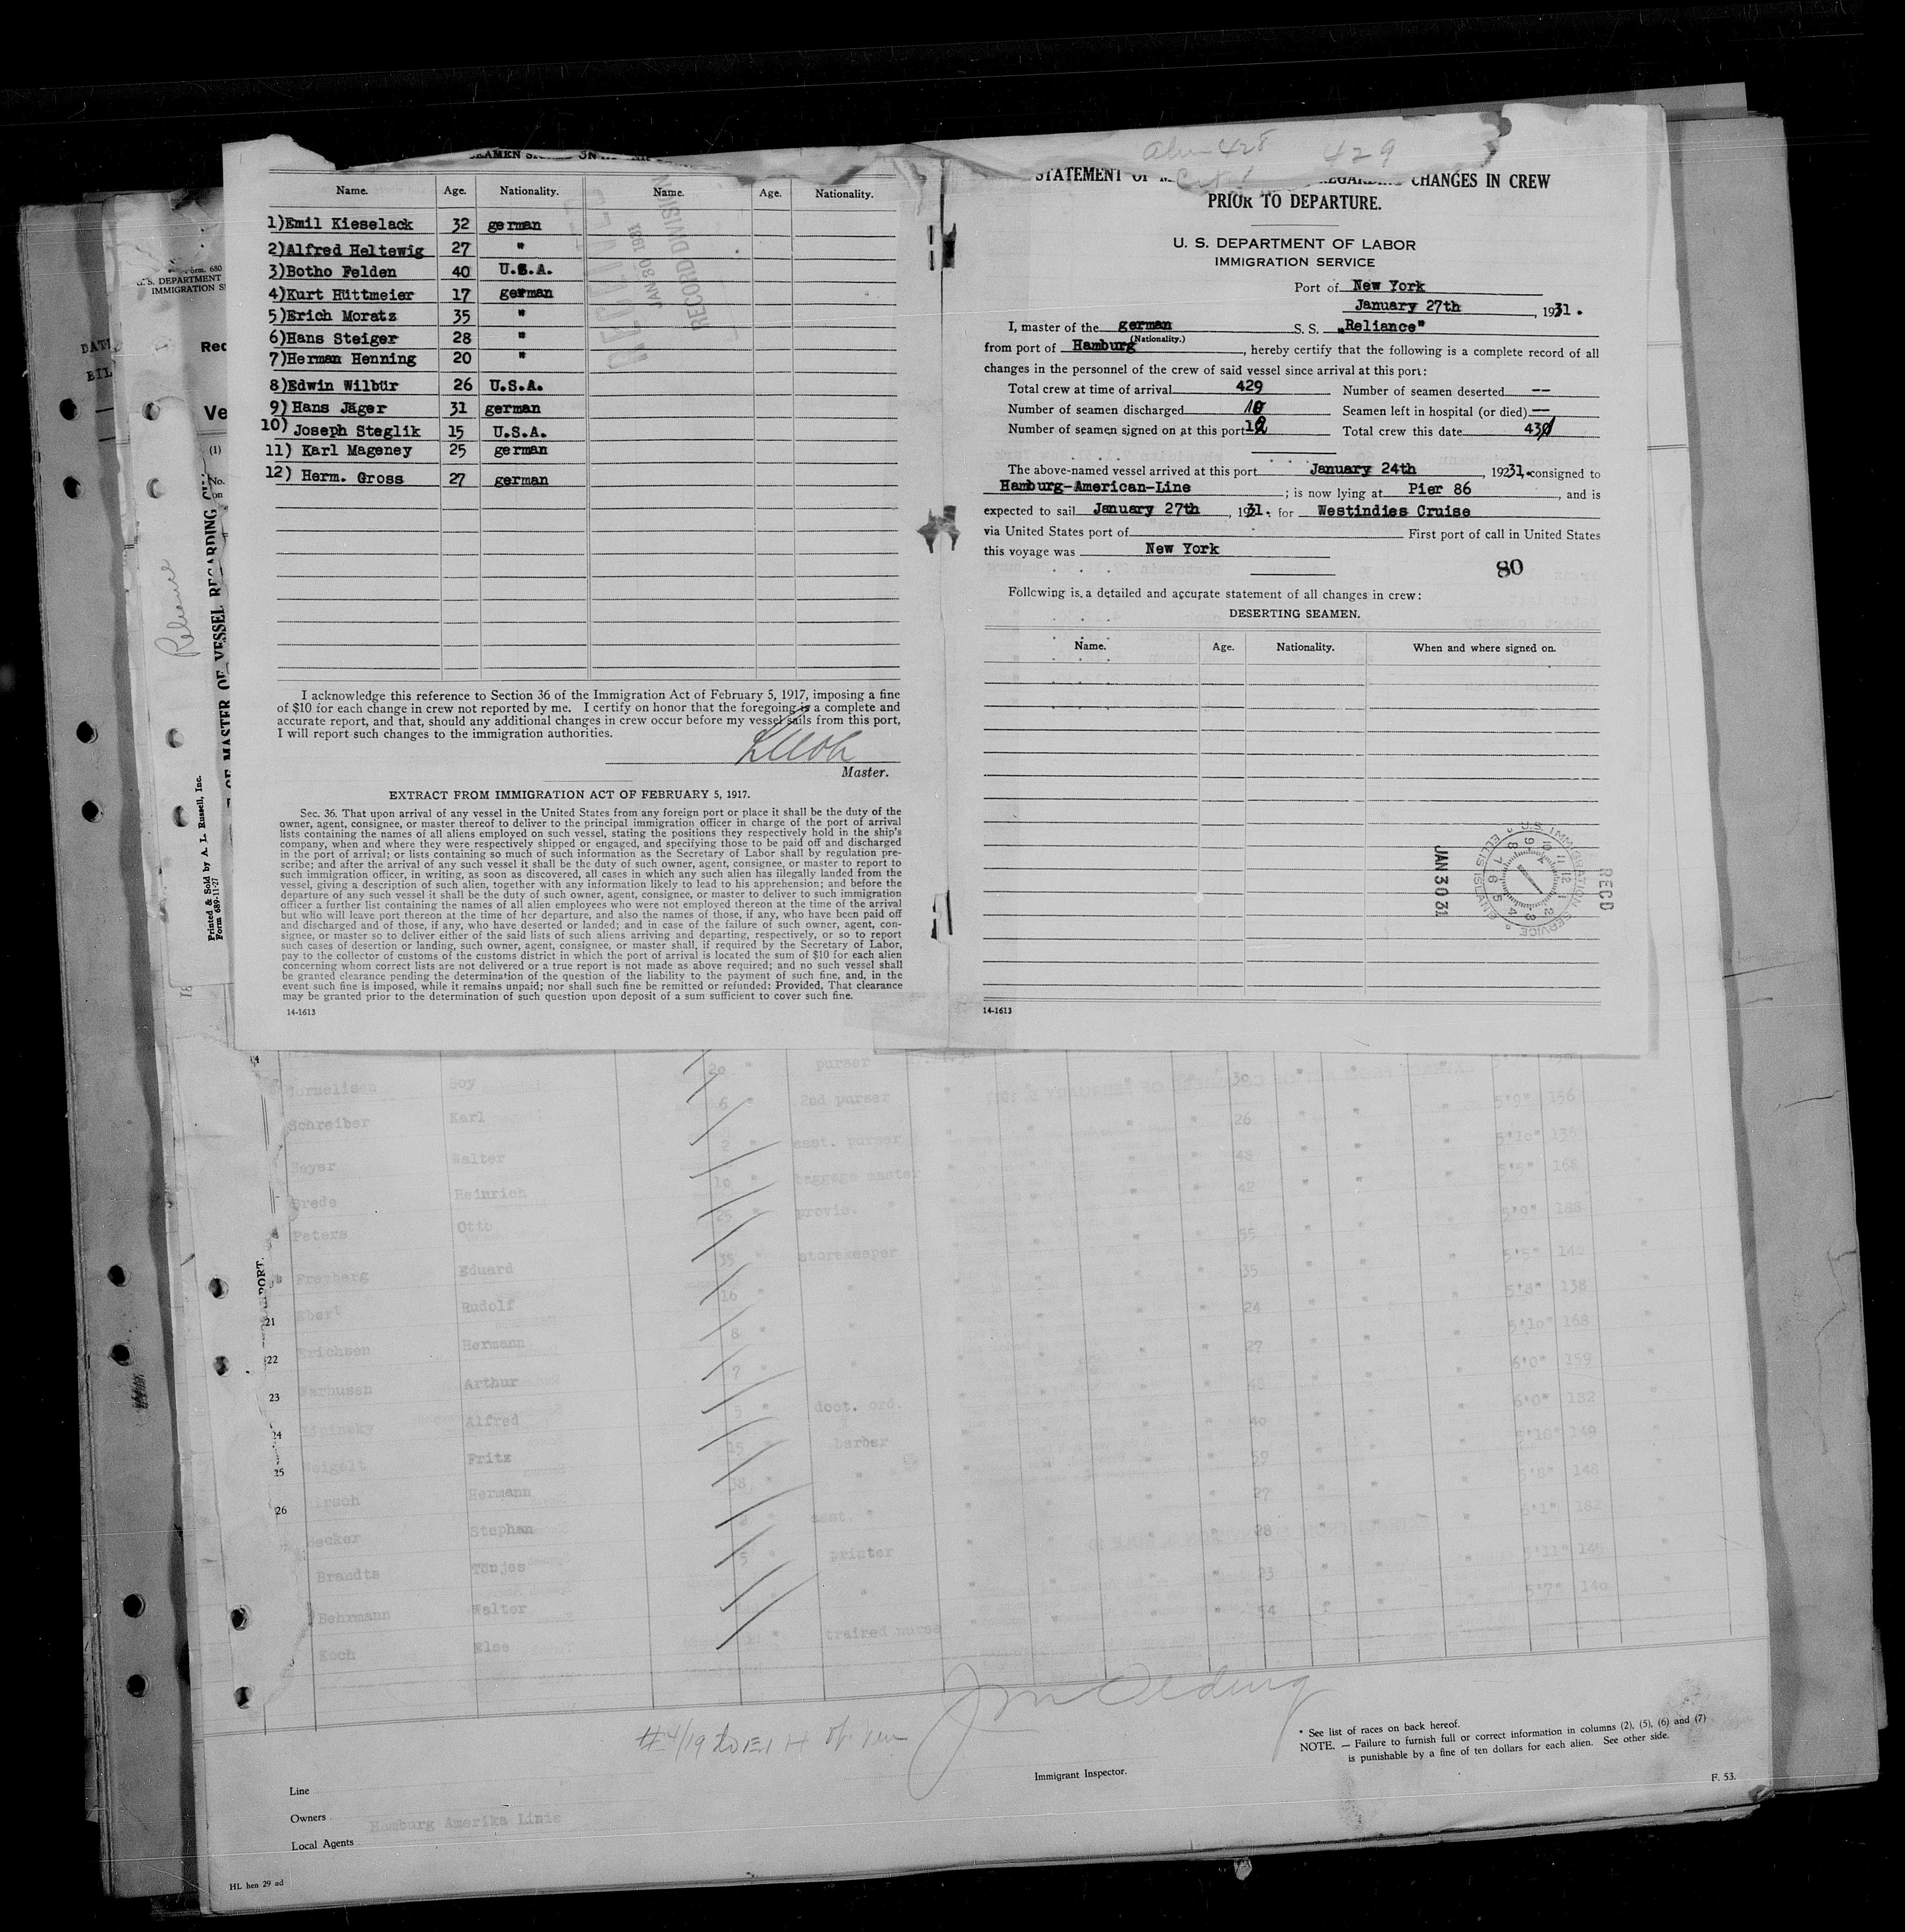 SEAMEN SIGNED ON
Name. Age. Nationality. Name. Age. Nationality.
1)Emil Kieselack 32 german
2)Alfred Heltewig 27 "
3)Botho Felden 40 U.S.A.
4)Kurt Hüttmeier 17 german
5)Erich Moratz 35 "
6)Hans Steiger 28 "
7)Herman Henning 20 "
8)Edwin Wilbür 26 U.S.A.
9)Hans Jäger 31 german
10) Joseph Steglik 15 U.S.A.
11) Karl Mageney 25 german
12) Herm. Gross 27 german
JAN 30 1931
RECORD DIVISION
I acknowledge this reference to Section 36 of the Immigration Act of February 5, 1917, imposing a fine
of $10 for each change in crew not reported by me. I certify on honor that the foregoing is a complete and
accurate report, and that, should any additional changes in crew occur before my vessel sails from this port,
I will report such changes to the immigration authorities.
Master.
EXTRACT FROM IMMIGRATION ACT OF FEBRUARY 5, 1917.
Sec. 36. That upon arrival of any vessel in the United States from any foreign port or place it shall be the duty of the
owner, agent, consignee, or master thereof to deliver to the principal immigration officer in charge of the port of arrival
lists containing the names of all aliens employed on such vessel, stating the positions they respectively hold in the ship's
company, when and where they were respectively shipped or engaged, and specifying those to be paid off and discharged
in the port of arrival; or lists containing so much of such information as the Secretary of Labor shall by regulation pre-
scribe; and after the arrival of any such vessel it shall be the duty of such owner, agent, consignee, or master to report to
such immigration officer, in writing, as soon as discovered, all cases in which any such alien has illegally landed from the
vessel, giving a description of such alien, together with any information likely to lead to his apprehension; and before the
departure of any such vessel it shall be the duty of such owner, agent, consignee, or master to deliver to such immigration
officer a further list containing the names of all alien employees who were not employed thereon at the time of the arrival
but who will leave port thereon at the time of her departure, and also the names of those, if any, who have been paid off
and discharged and of those, if any, who have deserted or landed; and in case of the failure of such owner, agent, con-
signee, or master so to deliver either of the said lists of such aliens arriving and departing, respectively, or so to report
such cases of desertion or landing, such owner, agent, consignee, or master shall, if required by the Secretary of Labor,
pay to the collector of customs of the customs district in which the port of arrival is located the sum of $10 for each alien
concerning whom correct lists are not delivered or a true report is not made as above required; and no such vessel shall
be granted clearance pending the determination of the question of the liability to the payment of such fine, and, in the
event such fine is imposed, while it remains unpaid; nor shall such fine be remitted or refunded: Provided, That clearance
may be granted prior to the determination of such question upon deposit of a sum sufficient to cover such fine.
14-1613
428 429
STATEMENT OF REGARDING CHANGES IN CREW
PRIOR TO DEPARTURE.
U. S. DEPARTMENT OF LABOR
IMMIGRATION SERVICE
Port of New York
January 27th, 1931.
I, master of the german S. S. „Reliance"
(Nationality.)
from port of Hamburg, hereby certify that the following is a complete record of all
changes in the personnel of the crew of said vessel since arrival at this port:
Total crew at time of arrival 429 Number of seamen deserted --
Number of seamen discharged 10 Seamen left in hospital (or died) --
Number of seamen signed on at this port 12 Total crew this date 431
The above-named vessel arrived at this port January 24th, 19231. consigned to
Hamburg-American-Line; is now lying at Pier 86, and is
expected to sail January 27th, 1931. for Westindies Cruise
via United States port of First port of call in United States
this voyage was New York
80
Following is a detailed and accurate statement of all changes in crew:
DESERTING SEAMEN.
Name. Age. Nationality. When and where signed on.
RECD
U.S. IMMIGRATION SERVICE
ELLIS ISLAND
JAN 30 31
14-1613
Form. 680
U. S. DEPARTMENT
IMMIGRATION
Rec
Ve
(1)
No.
on
Reliance
OF MASTER OF VESSEL REGARDING
Printed & Sold by A. L. Russell, Inc.
Form 689-11-27
Cornelisen Boy 20 " purser 30
Schreiber Karl 6 " 2nd purser 26 5'9" 156
Beyer Walter 2 " asst. purser 48 5'10" 138
Brede Heinrich 10 " baggage master 42 5'5" 168
Peters Otto 25 " provis. " 55 5'9" 188
Freyberg Eduard 35 " storekeeper 35 5'5" 140
Ebert Rudolf 16 " " 24 5'8" 138
21 Erichsen Hermann 8 " " 27 5'10" 168
22 Warhusen Arthur 7 " 6'0" 159
23 Lipinsky Alfred 5 " doct. ord. 40 6'0" 182
24 Weigelt Fritz 15 " barber 39 5'10" 149
25 Hirsch Hermann 38 " " 27 5'8" 148
26 Becker Stephan asst. " 28 6'1" 182
Brandts Tönjes 5 " printer 23 5'11" 145
Behrmann Walter " 54 5'7" 140
Koch Else " trained nurse
* See list of races on back hereof.
NOTE. — Failure to furnish full or correct information in columns (2), (5), (6) and (7)
is punishable by a fine of ten dollars for each alien. See other side.
Immigrant Inspector.
F. 53.
Line
Owners Hamburg Amerika Linie
Local Agents
HL hen 29 ad